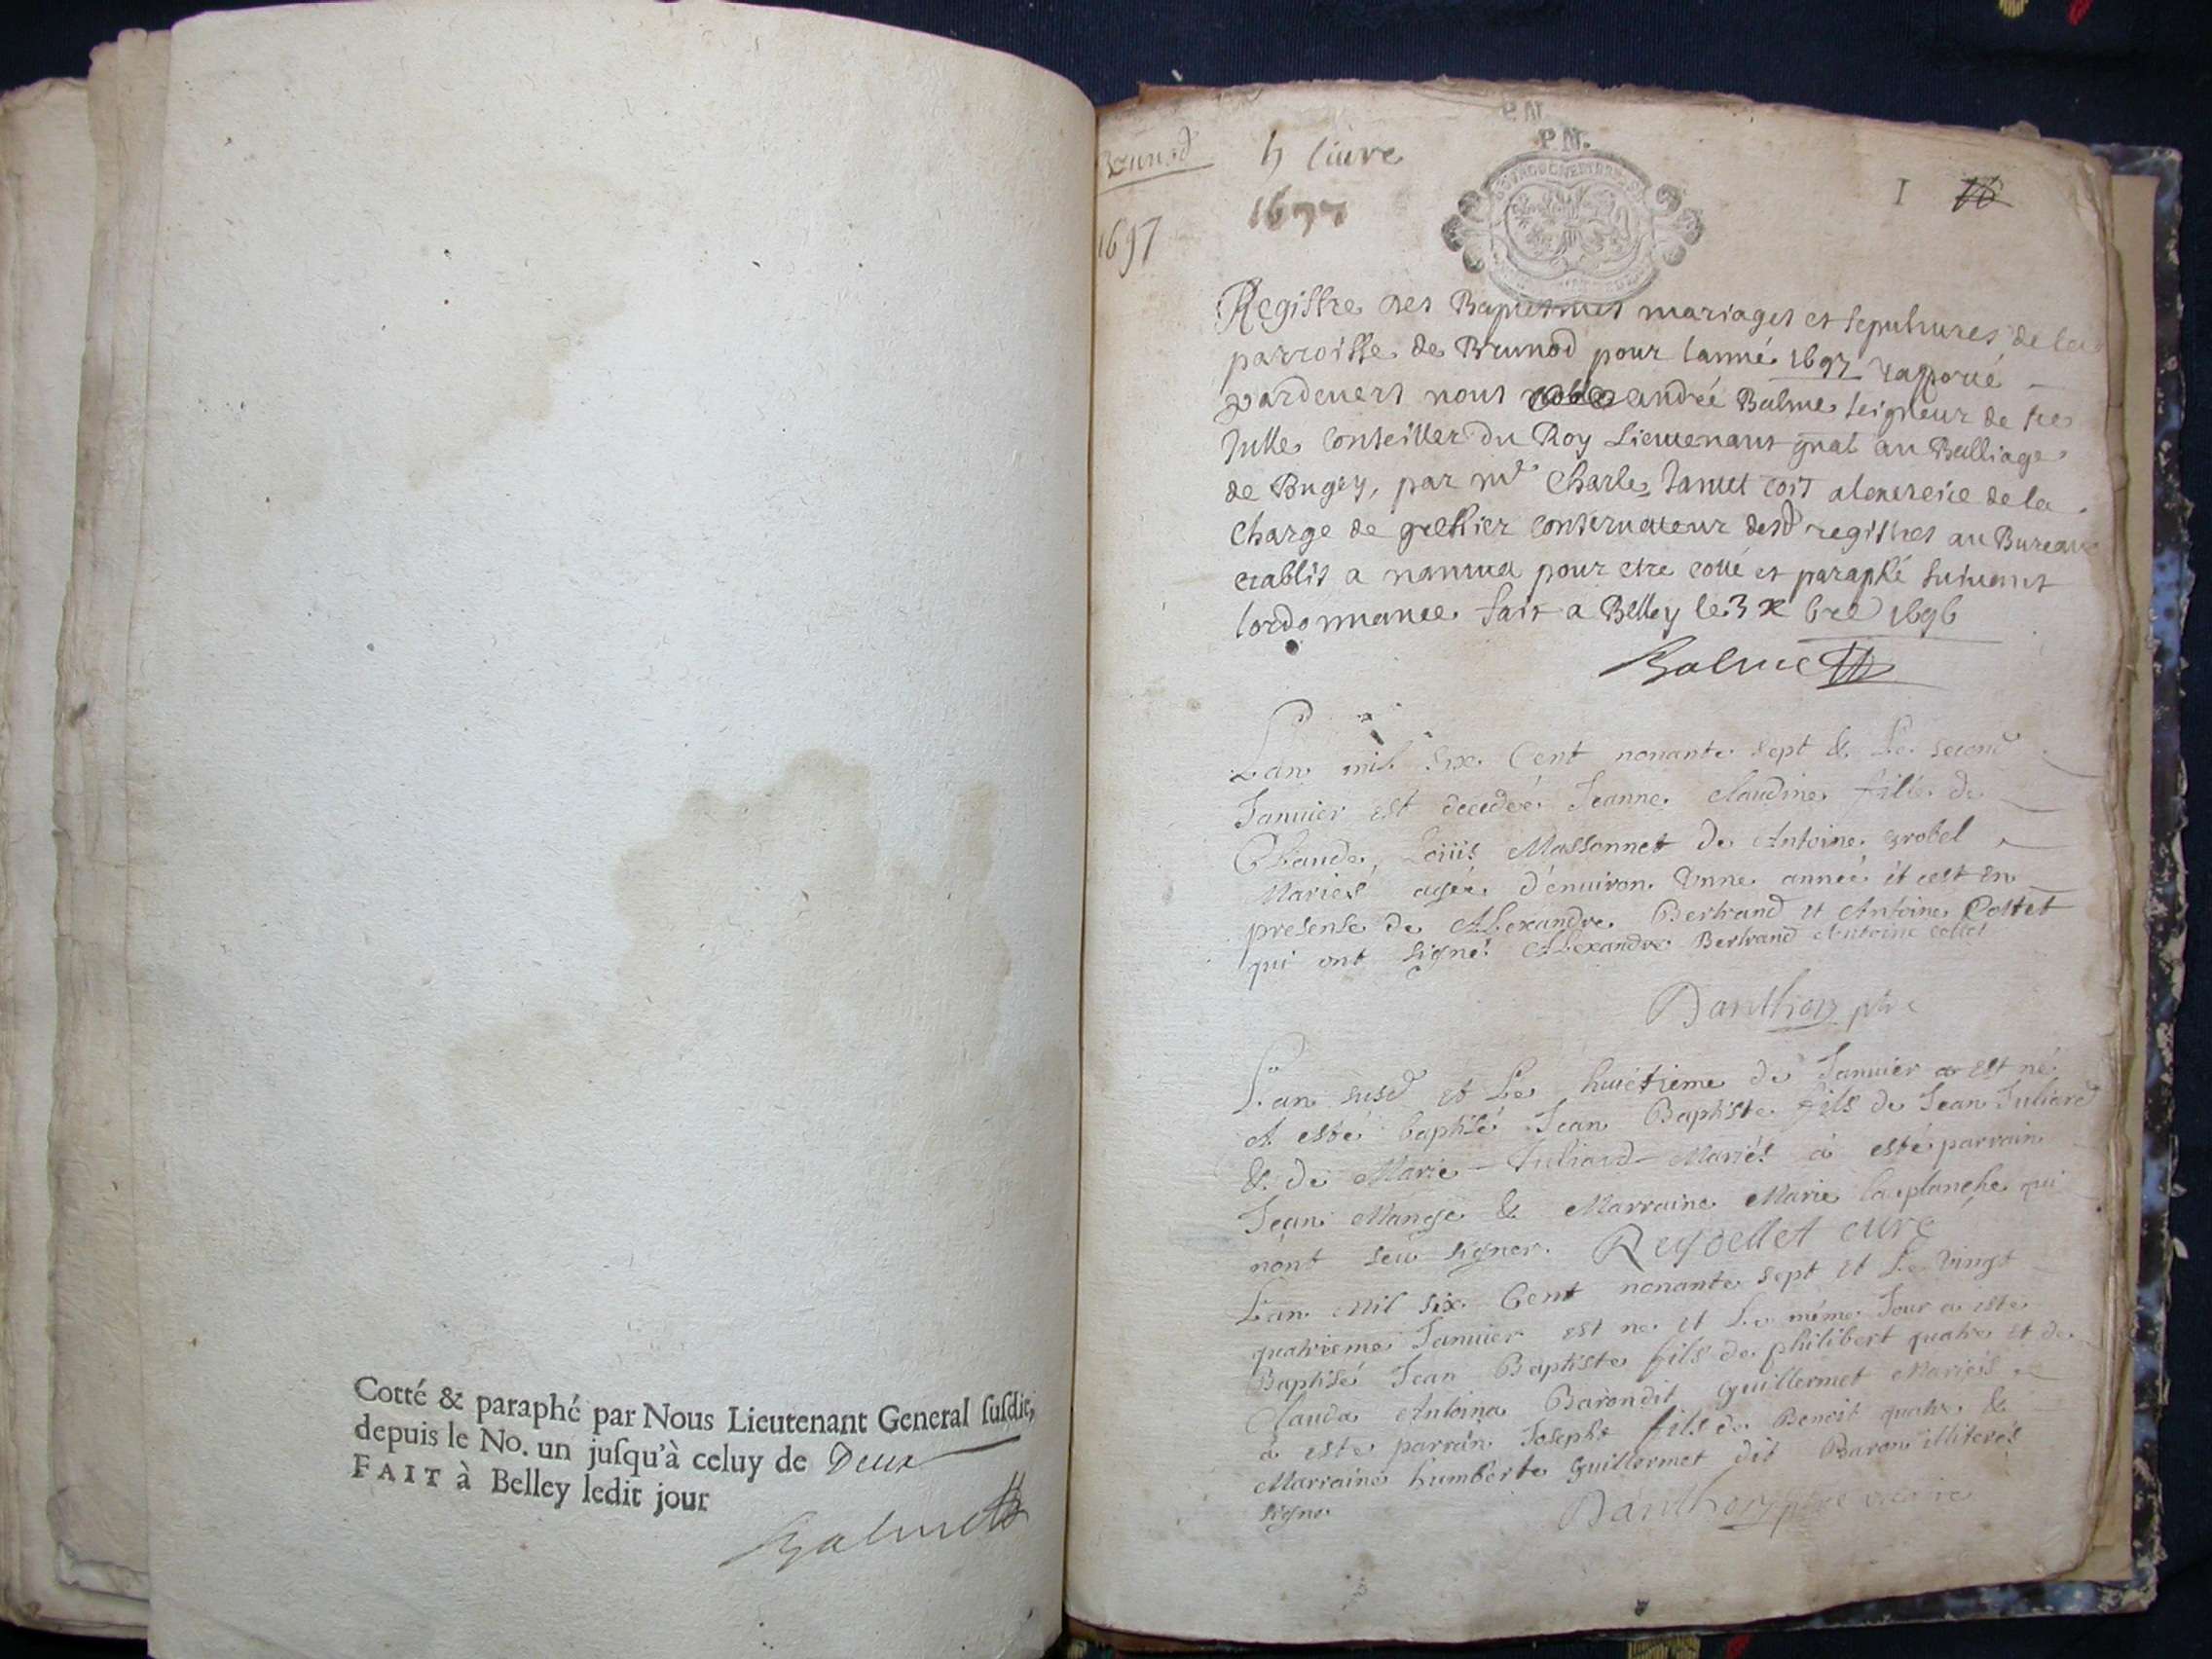 Cotté & paraphé par Nous Lieutenant General ſuſdit,
depuis le No. un juſqu'à celuy de Deux
FAIT à Belley ledit jour
Balme
Brunod
1697
h livre
1697
P.N.
P.N.
I 16
Registre des Baptesmes mariages et sepultures de la
parroisse de Brunod pour lanné 1697 raporté
pardevers nous noble andréé Balme seigneur de
conseiller du Roy Lieutenant gñal au Balliage
de Bugey, par Mᵉ Charles Janet alexercice de la
charge de greffier conservateur desd registres au Bureau
etablit a nantua pour etre cotté et paraphé suivant
lordonnance fait a Belley le 3 xbre 1696
Balme
Lan mil six Cent nonante sept & Le second
Januier est decedeé Jeanne Claudine fille de
Claude Loüis Massonnet de Antoine grobel
Mariés ageé d'enuiron Vnne anneé et cest en
presense de Alexandre Bertrand et Antoine Cottet
qui ont signé Alexandre Bertrand Antoine Cottet
Danthon ptre
Lan susd et Le huictieme de Januier est né
et esté baptisé Jean Baptiste fils de Jean Juliard
& de Marie Juliard Mariés à esté parrain
Jean Mange & Marraine Marie laplanche qui
nont seu signer. Reydellet curé
Lan Mil six Cent nonante sept et Le vingt
quatrieme Januier est ne et Le méme Jour a este
Baptisé Jean Baptiste fils de philibert quatre et de
Clauda Antoina Baron dit Guillermet Mariés
à esté parrain Joseph fils de Benoit quatre &
Marraine humberte Guillermet dit Baron illiterés
signe
Danthon ptre vicaire